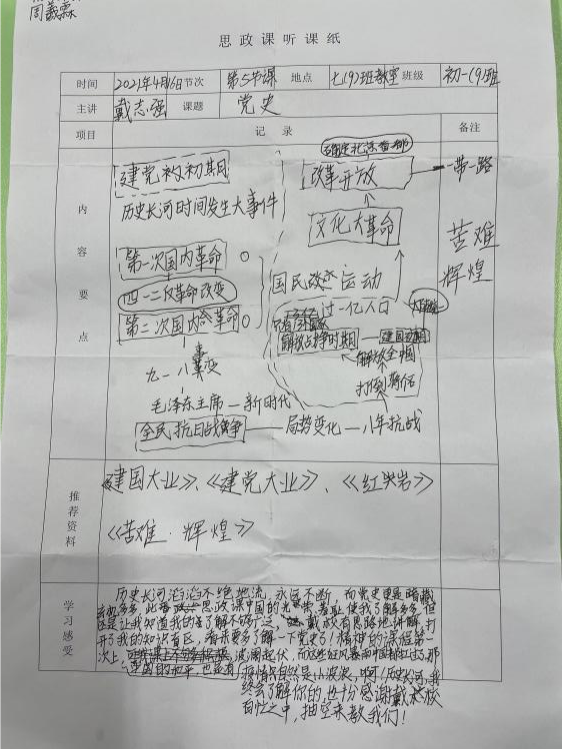 周義霖
思政课听课纸
时间 2021年4月16日 节次 第5节课 地点 七(9)班教室 班级 初一(9)班
主讲 戴志强 课题 党史
项目 记录 备注
内容要点
建党初期
历史长河时间发生大事件
第一次国内革命
四一二反革命改变
第二次国内革命
九一八事变
毛泽东主席—新时代
全民抗日战争—局势变化—八年抗战
改革开放
一带一路
文化大革命
国民改运动
过一亿人口
解放战争时期
解放全国
打到蒋石
苦难
辉煌
推荐资料
建国大业》、《建党大业》、《红岩》
《苦难·辉煌》
学习感受
历史长河滔滔不绝地流,永远不断,而党史更是暗藏
多多,此思政课中国的光荣,羞耻使我了解多多,但
还是让我知道我的了解不够广泛,戴校有思路地讲解,打
开了我的知识盲区,看来要多了解一下党史了!精神的课程第一
次上,波澜起伏,而这些红风暴
疫情只自然是小波浪,啊!历史长河,我
终会了解你的,也十分感谢戴校
百忙之中,抽空来教我们!